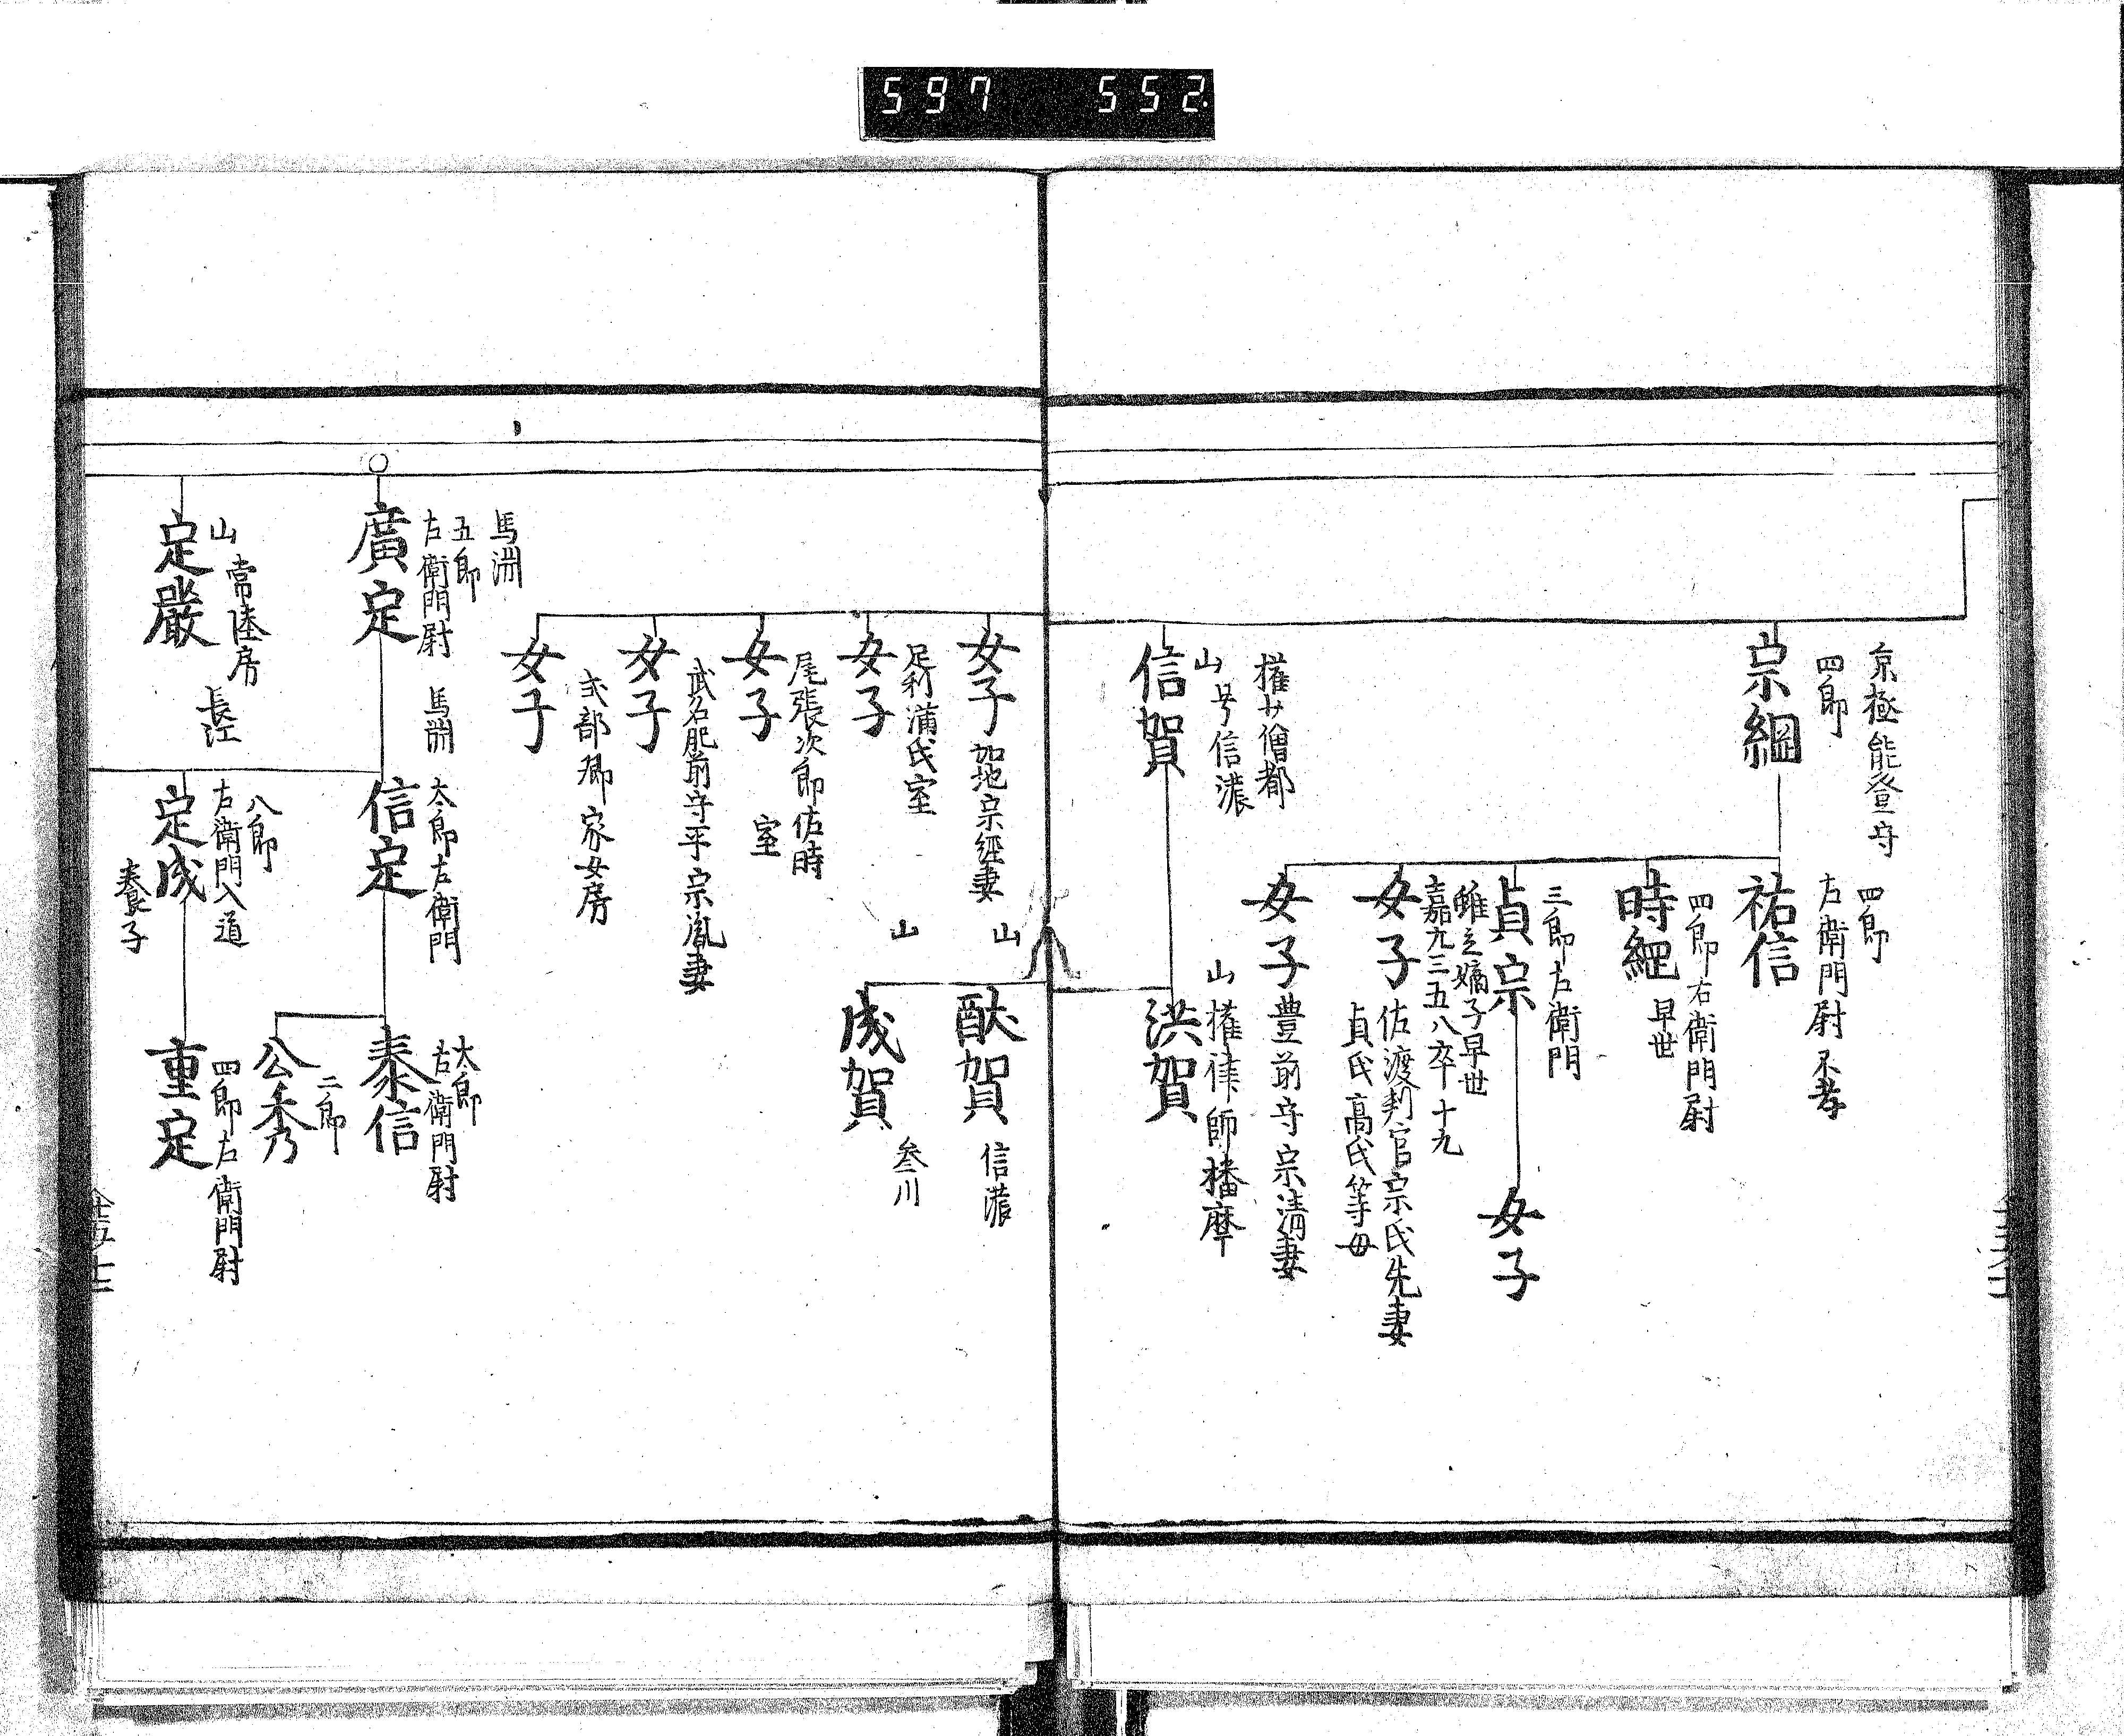 597 552
京極能登守
四郎
宗綱
四郎
左衛門尉 不孝
祐信
四郎右衛門尉
早世
時綱
三郎左衛門
貞宗
雖立嫡子早世
嘉元三五八卒十九
女子
女子
佐渡判官宗氏先妻
貞氏高氏等母
女子
豊前守宗清妻
権少僧都
山 号信濃
信賀
山 権律師播磨
洪賀
女子
加地宗經妻
山
賀
信濃
女子
足利蒲氏室
山
成賀
叁川
女子
尾張次郎佐時
室
女子
武石肥前守平宗胤妻
女子
式部卿家女房
馬渕
五郎
左衛門尉
廣定
馬渕
太郎左衛門
信定
太郎
左衛門尉
泰信
二郎
公秀
山 常陸房
定嚴
長江
八郎
左衛門入道
定成
養子
四郎左衛門尉
重定